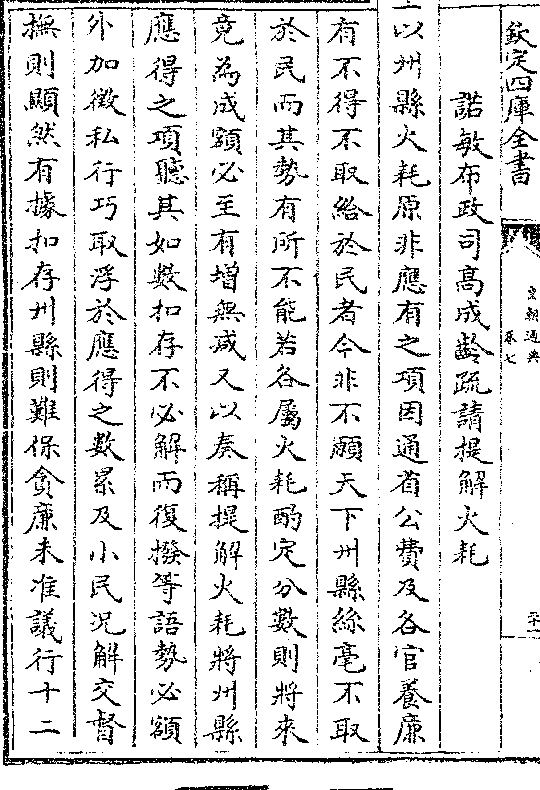 欽定四庫全書
皇朝通典
卷七
諾敏布政司髙成齡疏請提解火耗
上以州縣火耗原非應有之項因通省公費及各官養廉
有不得不取給於民者今非不願天下州縣絲毫不取
於民而其勢有所不能若各屬火耗酌定分數則將來
竟為成額必至有增無减又以奏稱提解火耗將州縣
應得之項聽其如數扣存不必解而復撥等語勢必額
外加徴私行巧取浮於應得之數累及小民况解交督
撫則顯然有據扣存州縣則難保貪廉未准議行十二